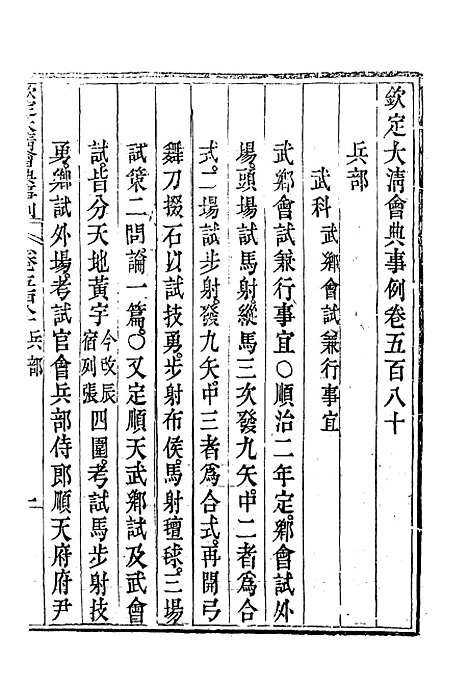 欽定大清會典事例卷五百八十
兵部
武科 武鄉會試兼行事宜
武鄉會試兼行事宜○順治二年定鄉會試外
場頭場試馬射縱馬三次發九矢中二者爲合
式二場試步射發九矢中三者爲合式再開弓
舞刀掇石以試技勇步射布侯馬射氊毬三場
試策二問論一篇○又定順天武鄉試及武會
試皆分天地黃宇今改辰宿列張四圍考試馬步射技
勇鄉試外場考試官會兵部侍郎順天府府尹
欽定大清會典事例 兵部 一